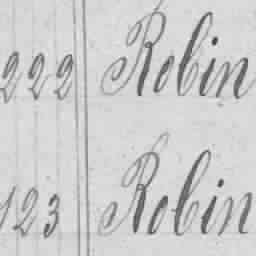 222 Robin
123 Robin